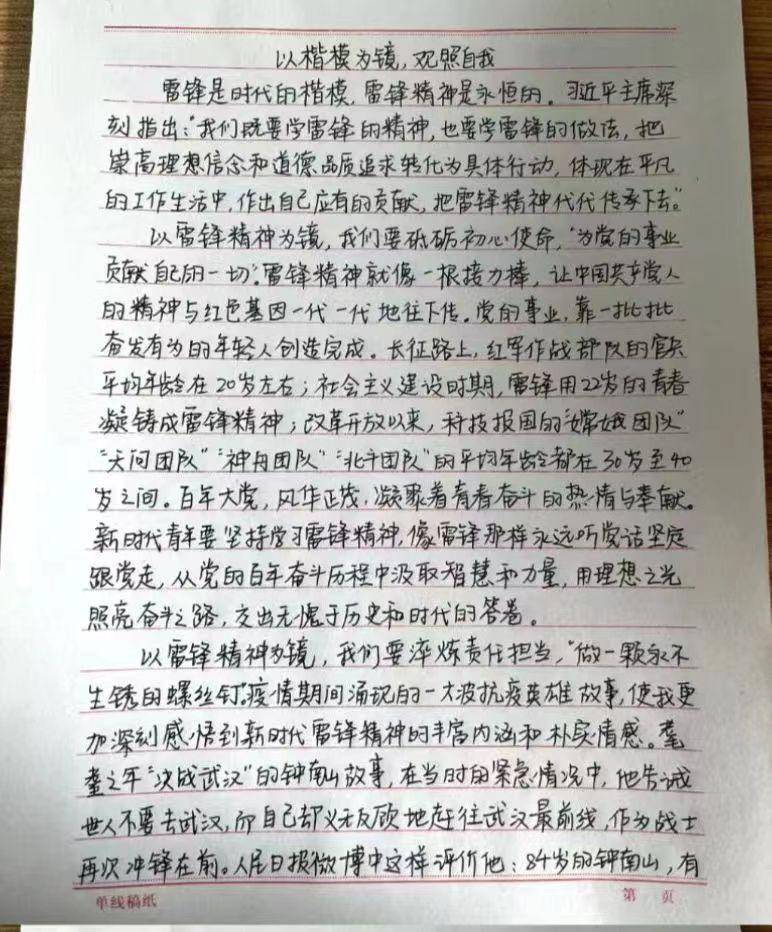 以楷模为镜，观照自我
雷锋是时代的楷模，雷锋精神是永恒的。习近平主席深
刻指出："我们既要学雷锋的精神，也要学雷锋的做法，把
崇高理想信念和道德品质追求转化为具体行动，体现在平凡
的工作生活中，作出自己应有的贡献，把雷锋精神代代传承下去。"
以雷锋精神为镜，我们要砥砺初心使命，"为党的事业
贡献自己的一切"。雷锋精神就像一根接力棒，让中国共产党人
的精神与红色基因一代一代地往下传。党的事业，靠一批批
奋发有为的年轻人创造完成。长征路上，红军作战部队的官兵
平均年龄在20岁左右；社会主义建设时期，雷锋用22岁的青春
凝铸成雷锋精神；改革开放以来，科技报国的"嫦娥团队"
"天问团队""神舟团队""北斗团队"的平均年龄都在30岁至40
岁之间。百年大党，风华正茂，凝聚着青春奋斗的热情与奉献。
新时代青年要坚持学习雷锋精神，像雷锋那样永远听党话坚定
跟党走，从党的百年奋斗历程中汲取智慧和力量，用理想之光
照亮奋斗之路，交出无愧于历史和时代的答卷。
以雷锋精神为镜，我们要淬炼责任担当，"做一颗永不
生锈的螺丝钉"。疫情期间涌现的一大波抗疫英雄故事，使我更
加深刻感悟到新时代雷锋精神的丰富内涵和朴实情感。耄
耋之年"决战武汉"的钟南山故事，在当时的紧急情况中，他告诫
世人不要去武汉，而自己却义无反顾地赶往武汉最前线，作为战士
再次冲锋在前。人民日报微博中这样评价他：84岁的钟南山，有
单线稿纸
第 页